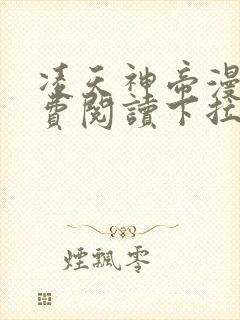 凌天神帝漫
費閱讀下拉
煙飄零